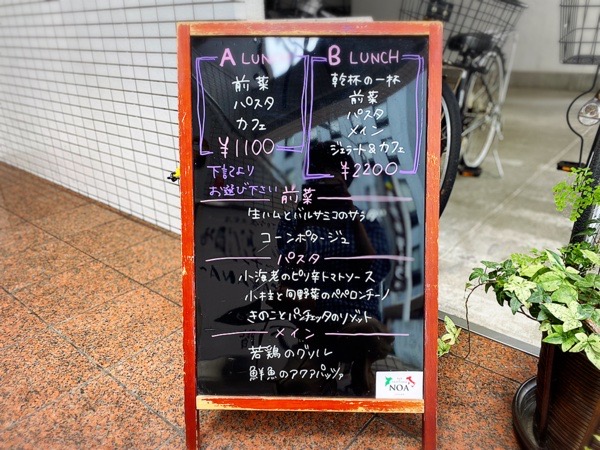 A LUNCH
前菜
パスタ
カフェ
¥1100
B LUNCH
乾杯の一杯
前菜
パスタ
メイン
ジェラート&カフェ
¥2200
下記より
お選び下さい
前菜
生ハムとバルサミコのサラダ
コーンポタージュ
パスタ
小海老のピリ辛トマトソース
小柱と旬野菜のペペロンチーノ
きのことパンチェッタのリゾット
メイン
若鶏のグリル
鮮魚のアクアパッツァ
NOA